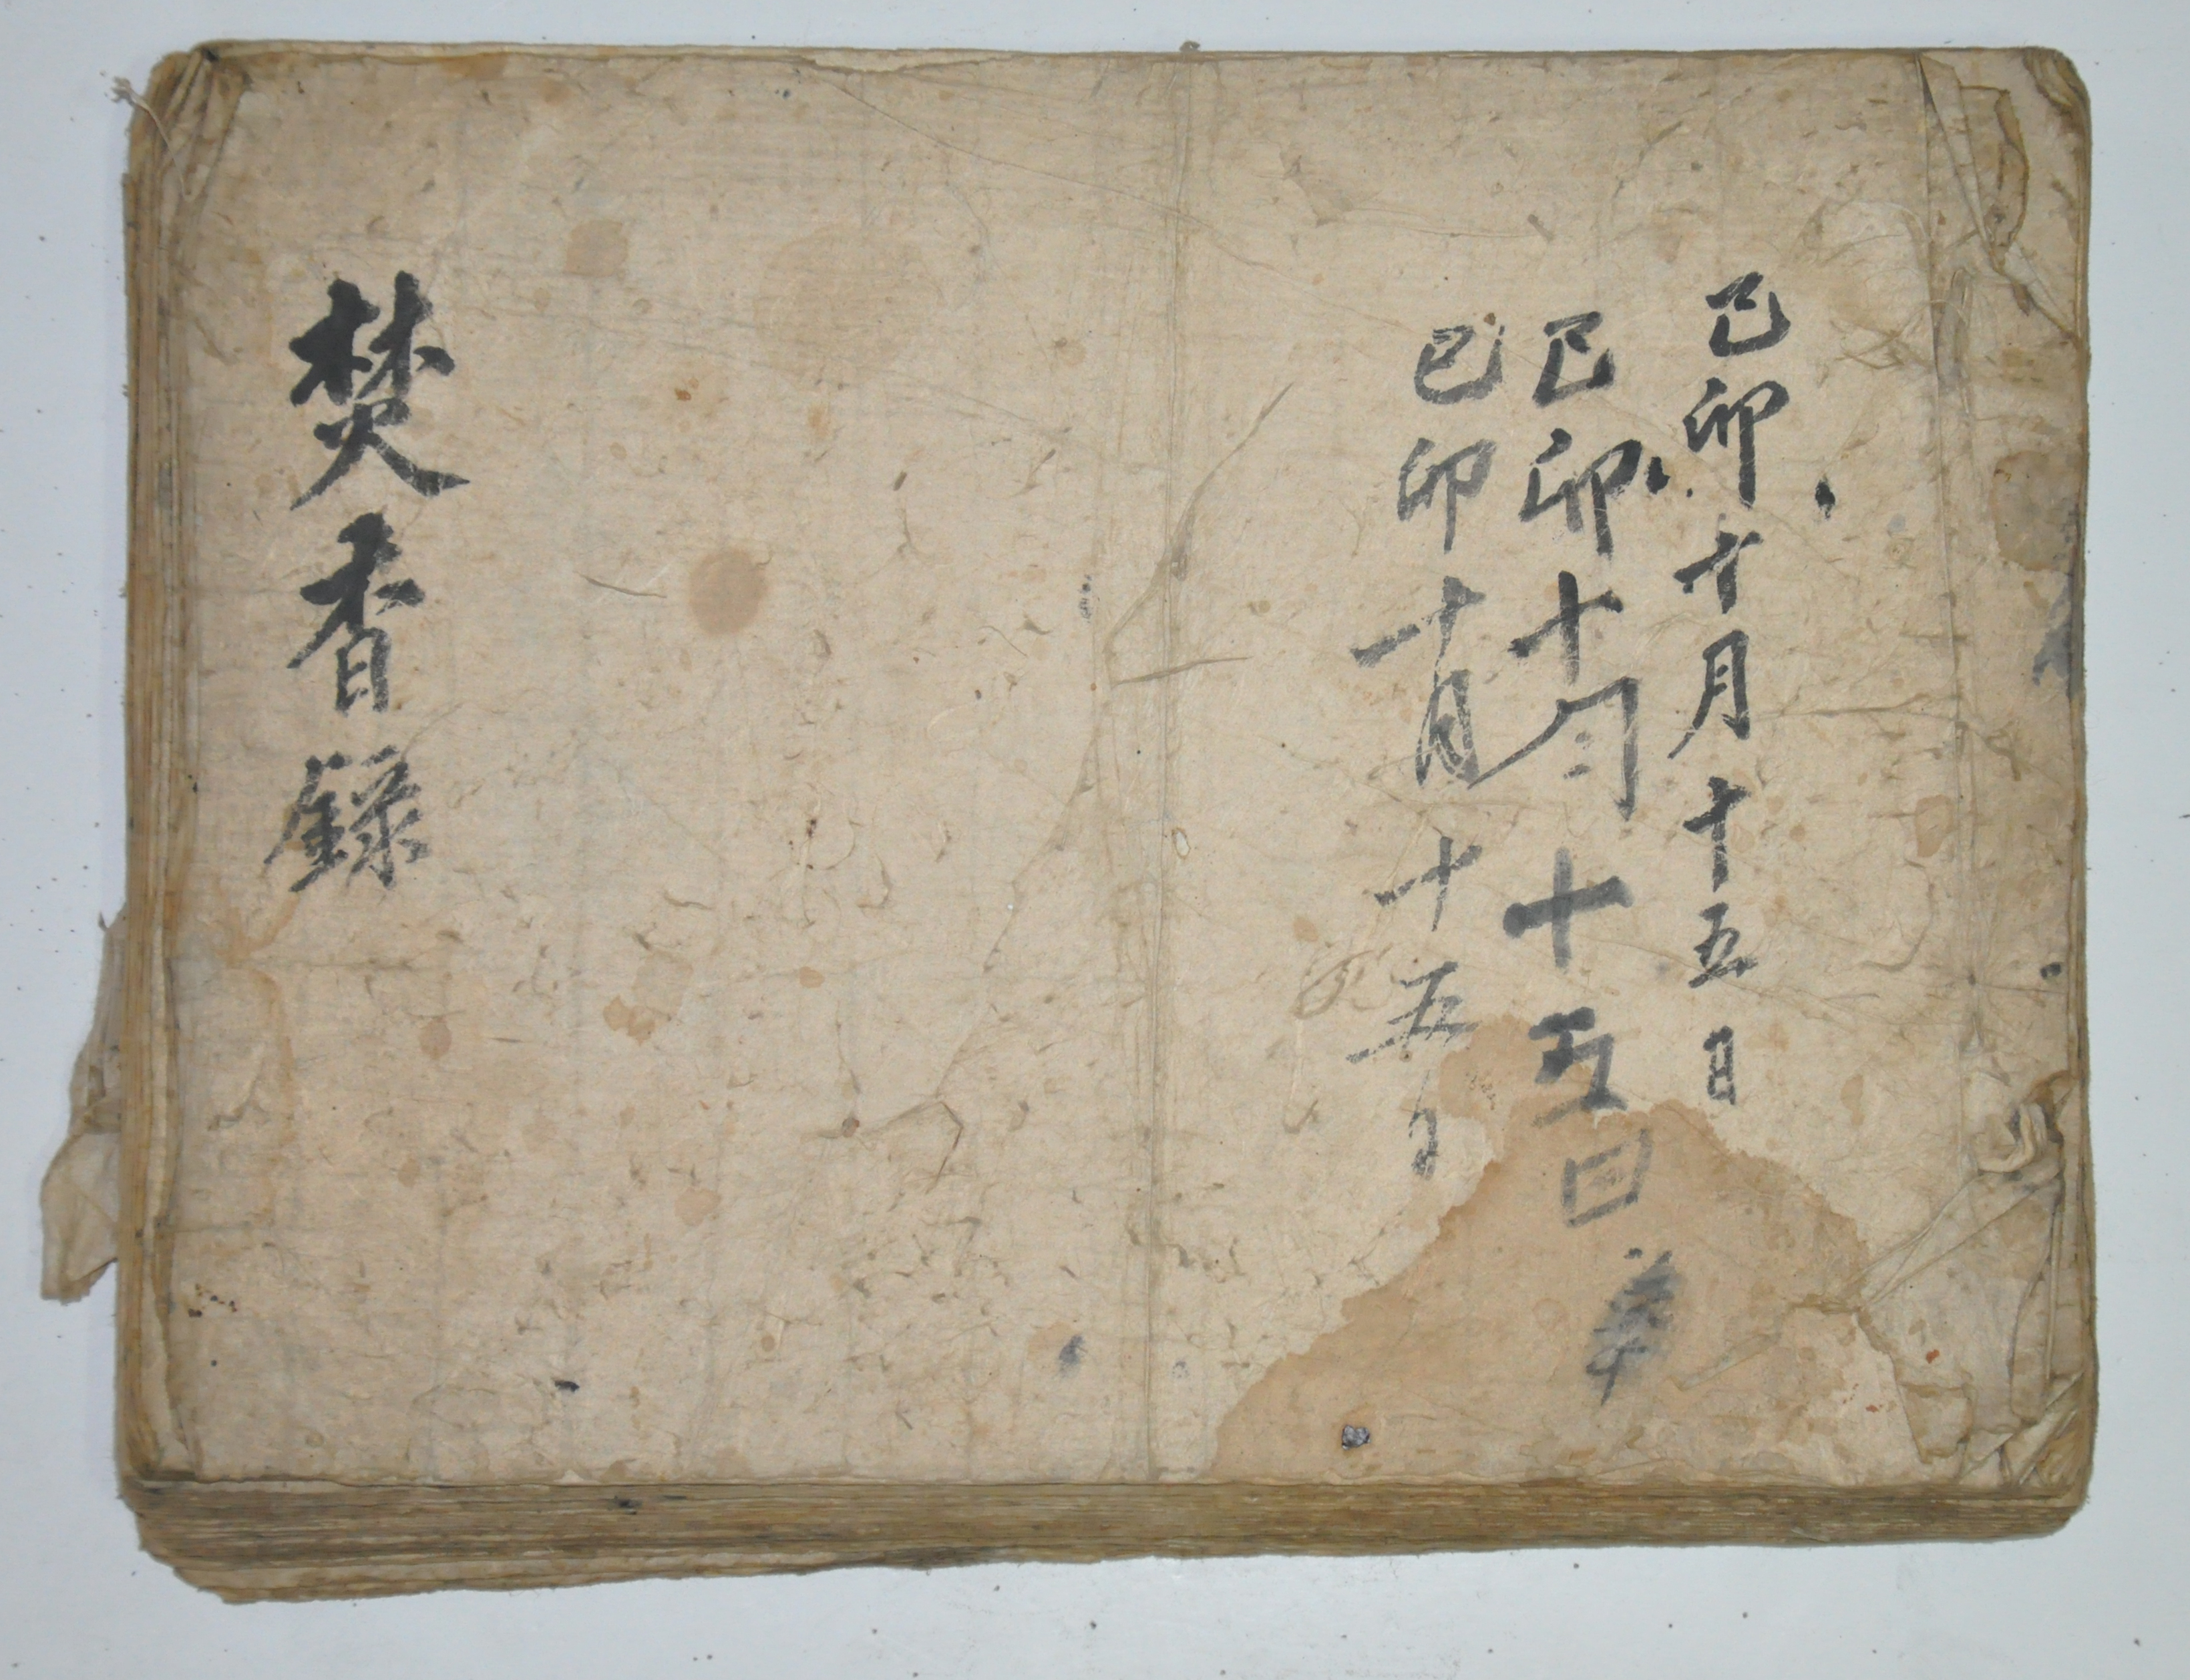 己卯十月十五日
己卯十月十五日
己卯十月十五日
焚香錄